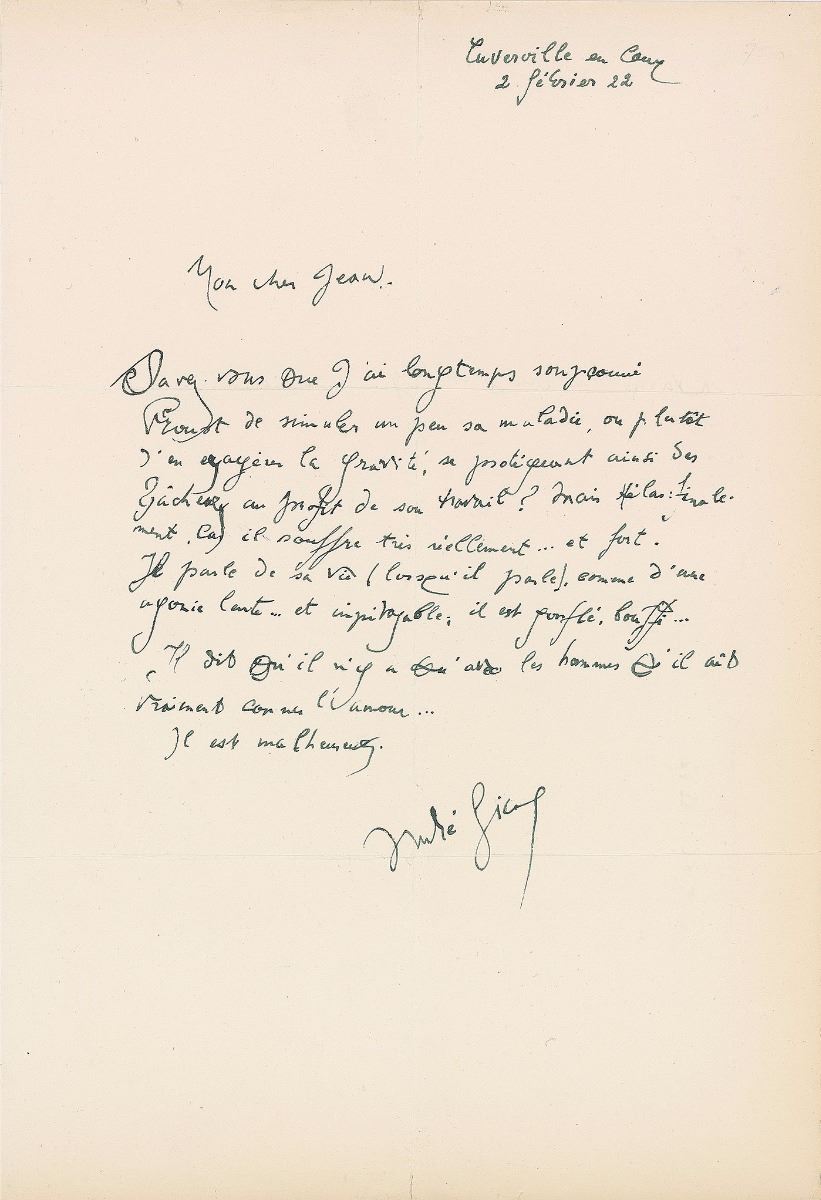 Cuverville en Caux
2 février 22
Mon cher Jean.
Savez-vous que j'ai longtemps soupçonné
Proust de simuler un peu sa maladie, ou plutôt
d'en exagérer la gravité, se protégeant ainsi des
fâcheux au profit de son travail? Mais hélas! finale-
ment, il souffre très réellement... et fort.
Il parle de sa vie (lorsqu'il parle), comme d'une
agonie lente... et impitoyable; il est gonflé, bouffi...
Il dit qu'il n'y a qu'avec les hommes qu'il aît
vraiment connu l'amour...
Il est malheureux.
André Gide